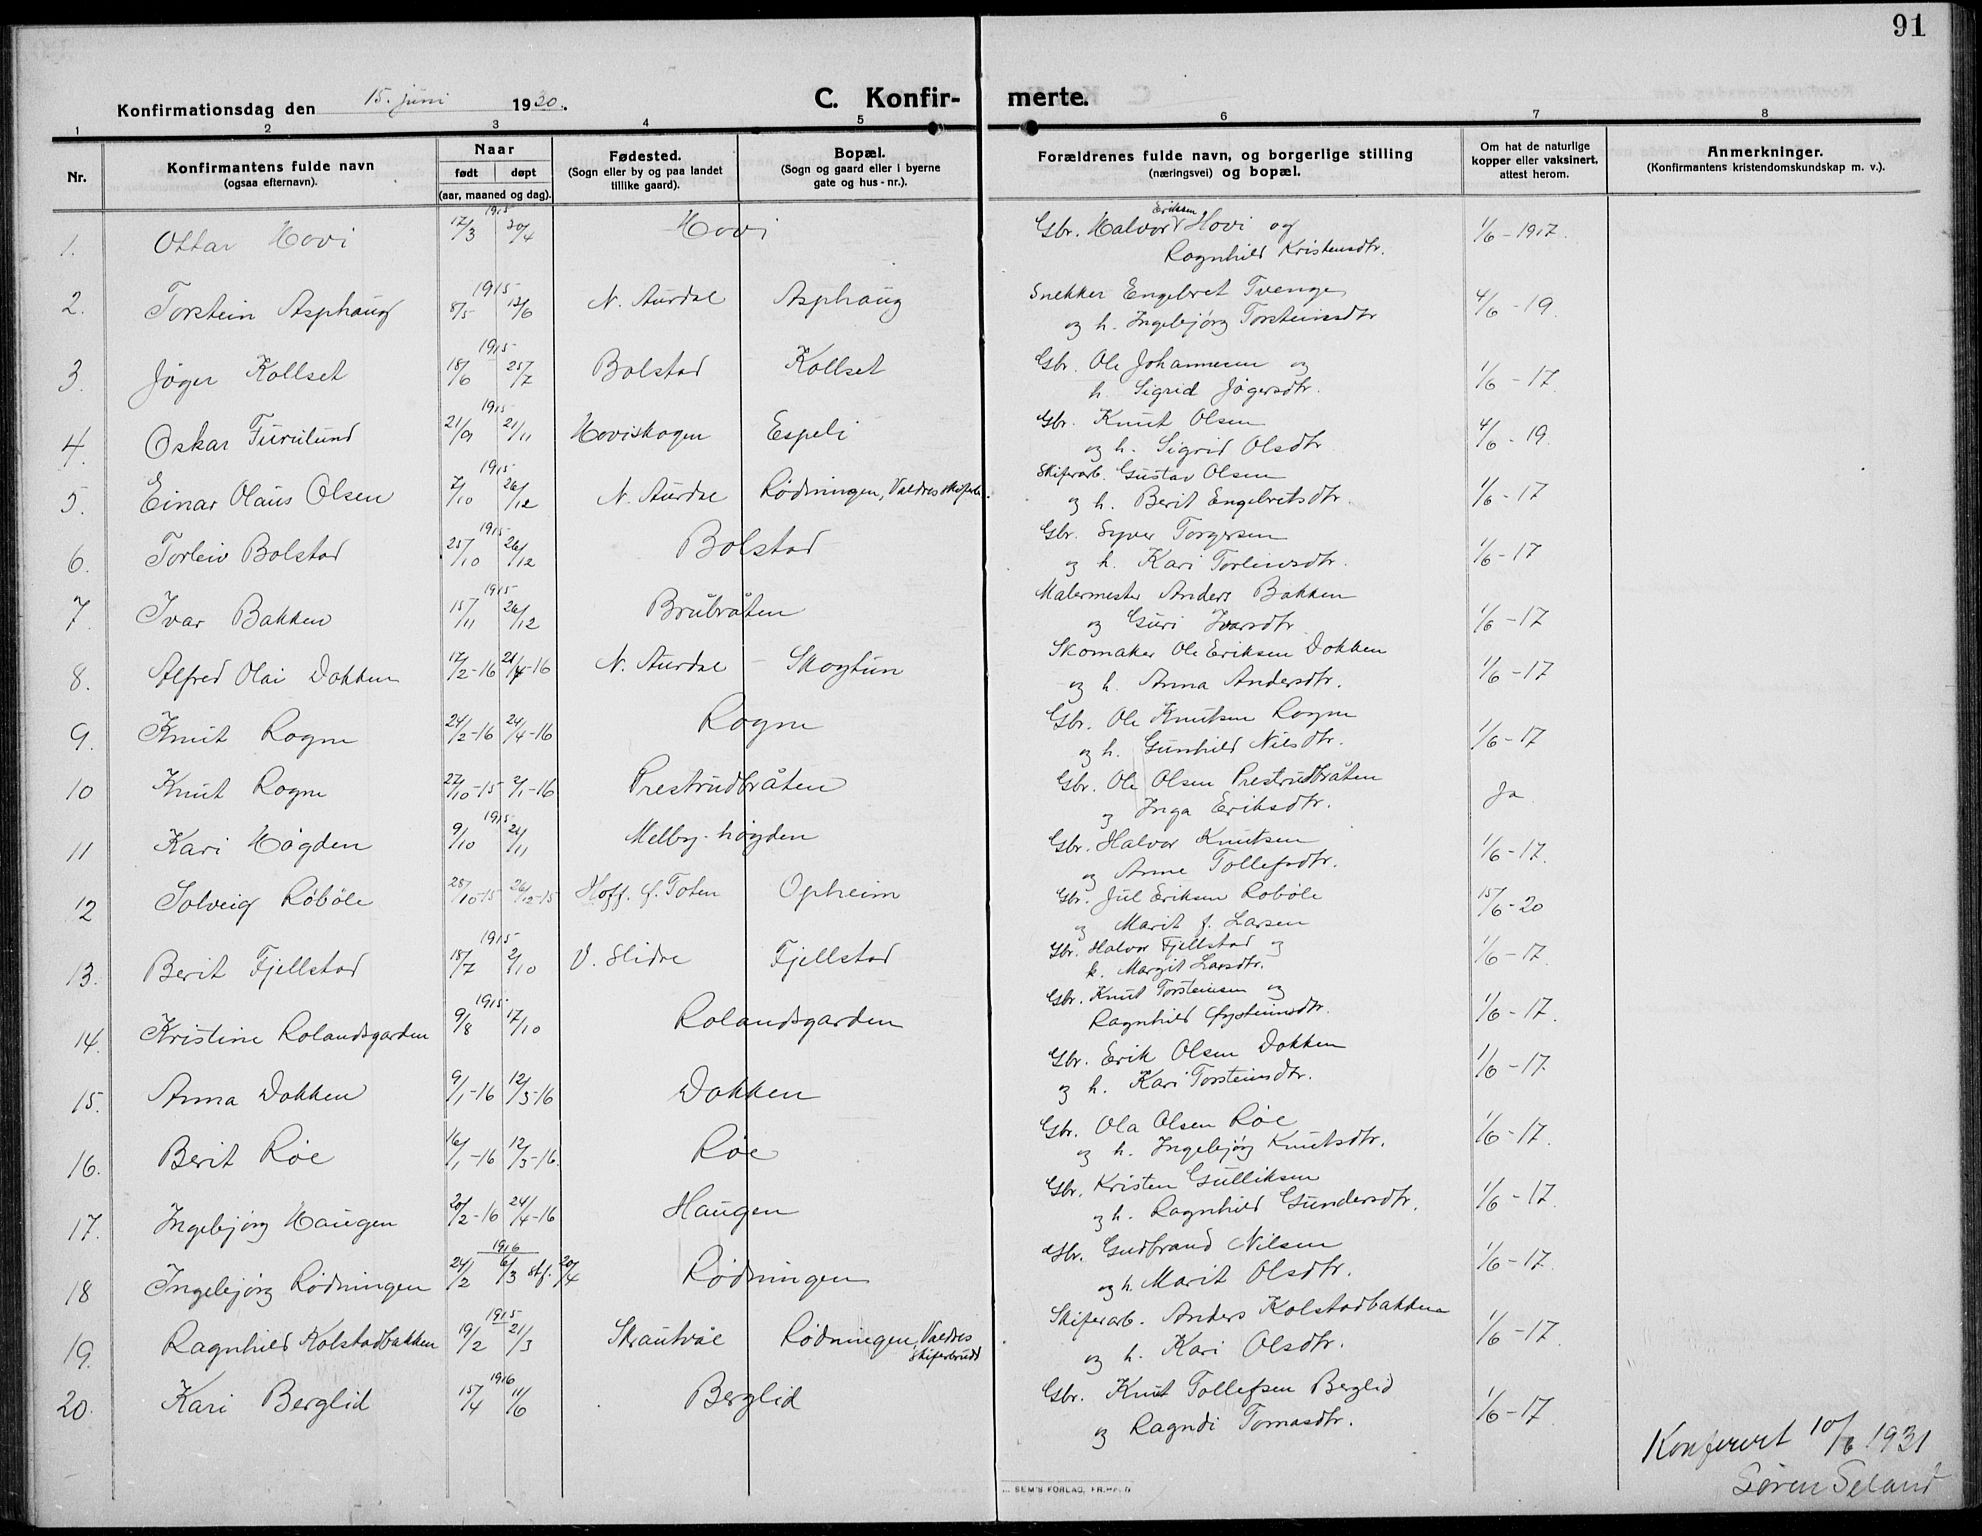 91
Konfirmationsdag den 15. juni 1930.
C. Konfir- merte.
1 2 3 4 5 6 7 8
Nr.
Konfirmantens fulde navn
(ogsaa efternavn).
Naar
født døpt
(aar, maaned og dag).
Fødested.
(Sogn eller by og paa landet
tillike gaard).
Bopæl.
(Sogn og gaard eller i byerne
gate og hus-nr.).
Forældrenes fulde navn, og borgerlige stilling
(næringsvei) og bopæl.
Om hat de naturlige
kopper eller vaksinert,
attest herom.
Anmerkninger.
(Konfirmantens kristendomskundskap m. v.).
1915
1. Ottar Hovi 17/3 30/4 Hovi Gbr. Halvor Eriksen Hovi og 1/6-1917.
Ragnhild Kristensdtr.
1915
2. Torstein Asphaug 8/5 13/6 N. Aurdal Asphaug Snekker Engebret Tvenge 4/6-19.
og h. Ingebjørg Torsteinsdtr
1915
3. Jøger Kollset 18/6 25/7 Bolstad Kollset Gbr. Ole Johannesen og 1/6-17
h. Sigrid Jøgersdtr.
1915
4. Oskar Furulund 21/9 21/11 Hoviskogen Espeli Gbr. Knut Olsen 4/6-19.
og h. Sigrid Olsdtr
1915
5. Einar Olaus Olsen 7/10 26/12 N. Aurdal Rødningen, Valdres Skiferarb. Gustav Olsen 1/6-17
og h. Berit Engebretsdtr.
1915
6. Torleiv Bolstad 25/10 26/12 Bolstad Gbr. Syver Torgersen 1/6-17
og h. Kari Torleivsdtr.
1915
7. Ivar Bakken 15/11 26/12 Brubråten Malermester Anders Bakken 1/6-17
og Guri Ivarsdtr
8. Alfred Olai Dokken 17/2-16 21/4-16 N. Aurdal - Skogtun Skomaker Ole Eriksen Dokken 1/6-17
og h. Anna Andersdtr.
9. Knut Rogne 24/2-16 24/4-16 Rogne Gbr. Ole Knutsen Rogne 1/6-17
og h. Gunhild Nilsdtr.
10 Knut Rogne 27/10-15 2/1-16 Prestrudbråten Gbr. Ole Olsen Prestrudbråten Ja
og Inga Eriksdtr.
1915
11 Kari Høgden 9/10 21/11 Melby-høgden Gbr. Halvor Knutsen 1/6-17.
og Anne Tollefsdtr.
12 Solveig Røbøle 28/10-15 26/12-15 Hoff. Ø. Toten Opheim Gbr. Jul Eriksen Røbøle 15/6-20
og Marit f. Larsen
1915
13. Berit Fjellstad 18/7 2/10 V. Slidre Fjellstad Gbr. Halvor Fjellstad og 1/6-17.
h. Margit Larsdtr.
1915
14. Kristine Rolandsgarden 9/8 17/10 Rolandsgarden Gbr. Knut Torsteinsen og 1/6-17.
Ragnhild Øysteinsdtr.
15. Anna Dokken 9/1-16 12/3-16 Dokken Gbr. Erik Olsen Dokken 1/6-17.
og h. Kari Torsteinsdtr.
16. Berit Røe 16/1-16 12/3-16. Røe Gbr. Ola Olsen Røe 1/6-17.
og h. Ingebjørg Knutsdtr.
17. Ingebjørg Haugen 20/2-16 24/4-16 Haugen Gbr. Kristen Gulliksen 1/6-17.
og h. Ragnhild Gundersdtr.
1916
18 Ingebjørg Rødningen 24/2 6/3 stf. 20/4 Rødningen Gbr. Gudbrand Nilsen 1/6-17.
og h. Marit Olsdtr.
1915
19. Ragnhild Kolstadbakken 19/2 21/3 Skrautvål Rødningen, Valdres Skiferbrudd Skiferarb. Anders Kolstadbakken 1/6-17
og h. Kari Olsdtr.
1916
20. Kari Berglid 15/4 11/6 Berglid Gbr. Knut Tollefsen Berglid 1/6-17.
og Ragndi Tomasdtr.
Konferert 10/6 1931
Søren Seland
SEM'S FORLAG, FR.HALD